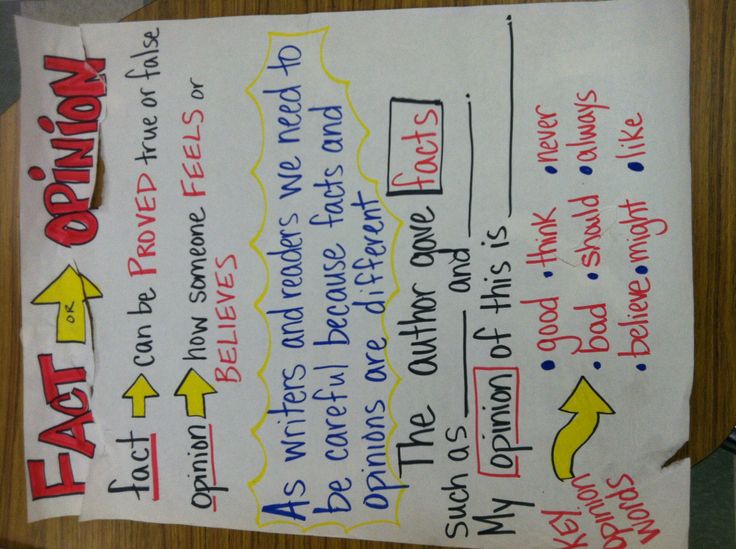 FACT OR OPINION
fact → can be PROVED true or false
opinion → how someone FEELS or
BELIEVES
As writers and readers we need to
be careful because facts and
opinions are different
The author gave facts
such as ______ and ______.
My opinion of this is ______.
KEY opinion words
• good • think • never
• bad • should • always
• believe • might • like